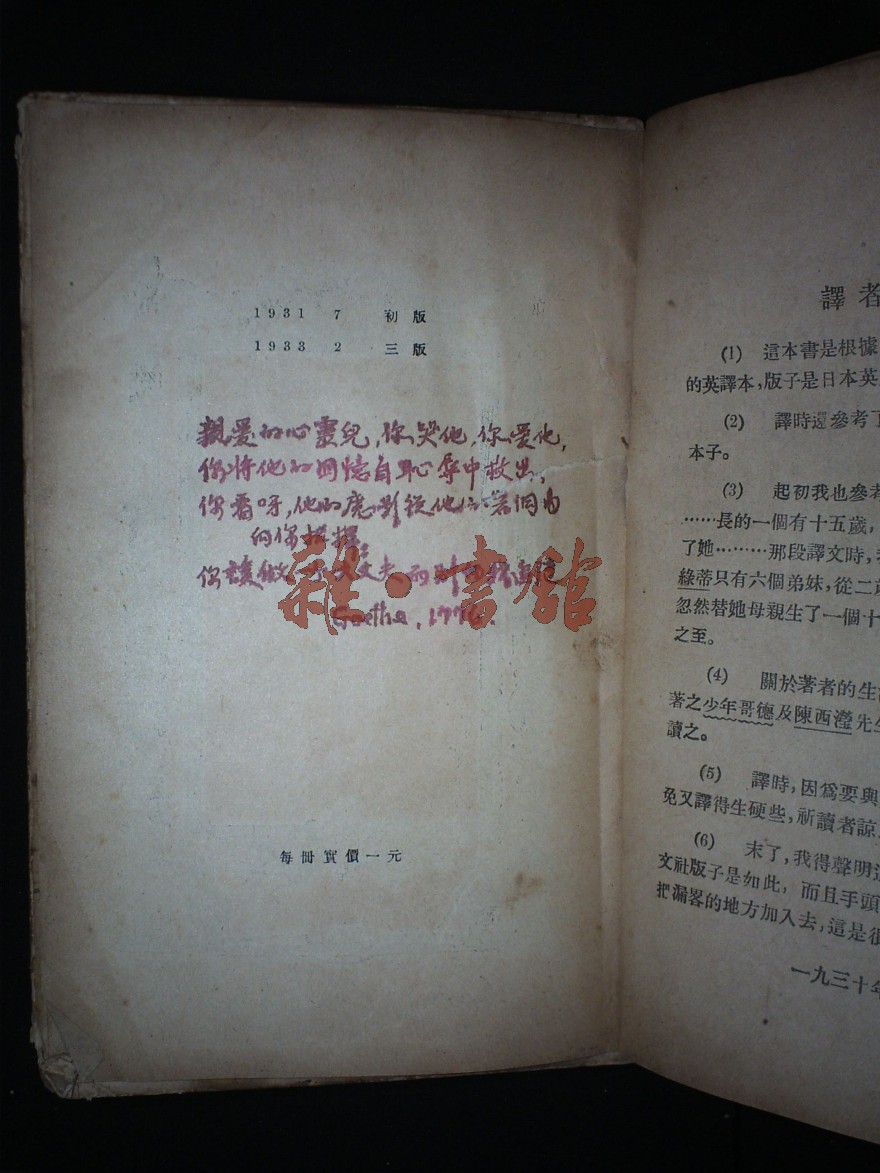 1931 7 初版
1933 2 三版
親愛的心靈兒，你哭他，你愛他，
你將他的回憶自恥辱中救出，
你看呀，他的靈影從他
的你招
你讓做 丈夫，而
Goethe, 177
每冊實價一元
雜·書館
譯者
(1) 這本書是根據
的英譯本，版子是日本英
(2) 譯時還參考了
本子。
(3) 起初我也參考
……長的一個有十五歲，
了她………那段譯文時，
綠蒂只有六個弟妹，從二歲
忽然替她母親生了一個十
之至。
(4) 關於著者的生
著之少年哥德及陳西瀅先生
讀之。
(5) 譯時，因爲要與
免又譯得生硬些，祈讀者諒
(6) 末了，我得聲明這
文社版子是如此，而且手頭
把漏畧的地方加入去，這是很
一九三十年